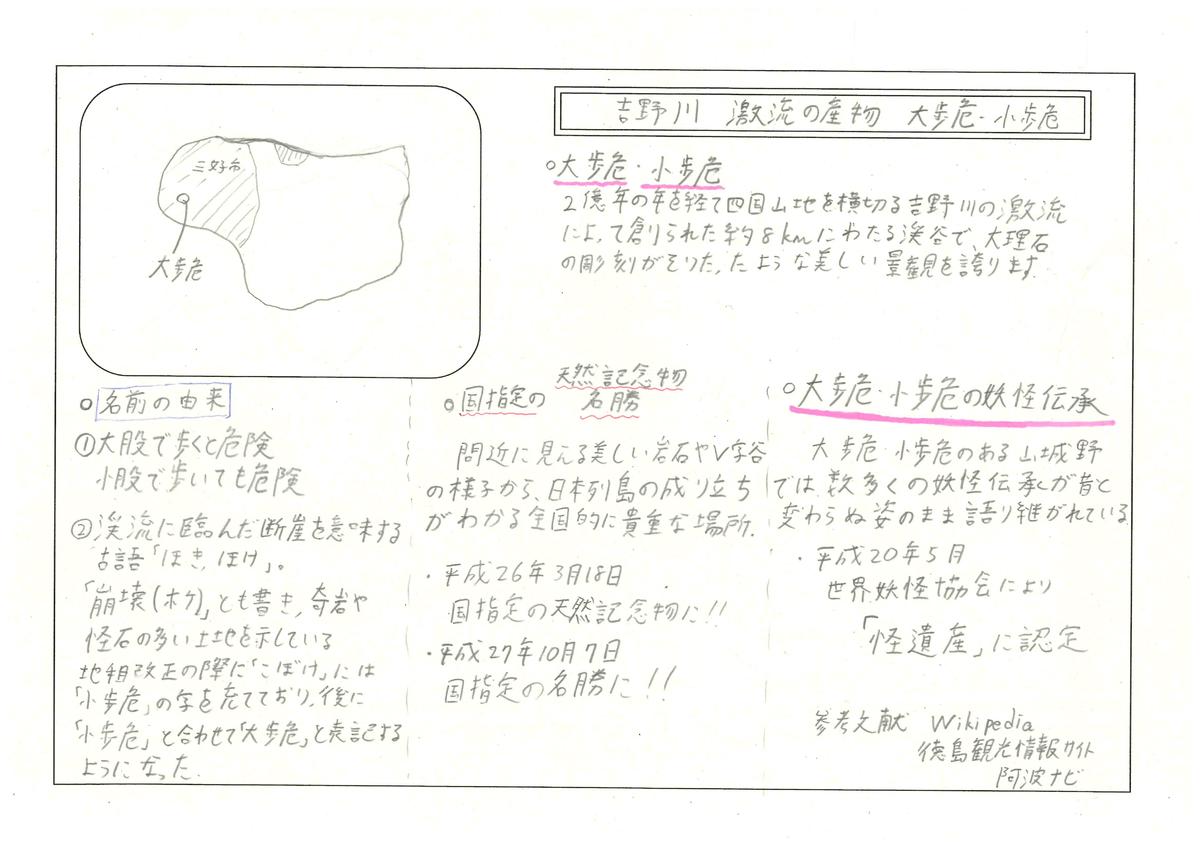 吉野川 激流の産物 大歩危・小歩危
三好市
大歩危
○大歩危・小歩危
2億年の年を経て四国山地を横切る吉野川の激流
によって創られた約8kmにわたる渓谷で、大理石
の彫刻がそりたったような美しい景観を誇ります。
○名前の由来
①大股で歩くと危険
小股で歩いても危険
②渓流に臨んだ断崖を意味する
古語「ほき、ほけ」。
「崩壊(ホケ)」とも書き、奇岩や
怪石の多い土地を示している
地租改正の際に「こぼけ」には
「小歩危」の字を充てており、後に
「小歩危」と合わせて「大歩危」と表記する
ようになった。
○国指定の 天然記念物
名勝
間近に見える美しい岩石やV字谷
の様子から、日本列島の成り立ち
がわかる全国的に貴重な場所。
・平成26年3月18日
国指定の天然記念物に!!
・平成27年10月7日
国指定の名勝に!!
○大歩危・小歩危の妖怪伝承
大歩危・小歩危のある山城野
では、数多くの妖怪伝承が昔と
変わらぬ姿のまま語り継がれている。
・平成20年5月
世界妖怪協会により
「怪遺産」に認定
参考文献 Wikipedia
徳島観光情報サイト
阿波ナビ